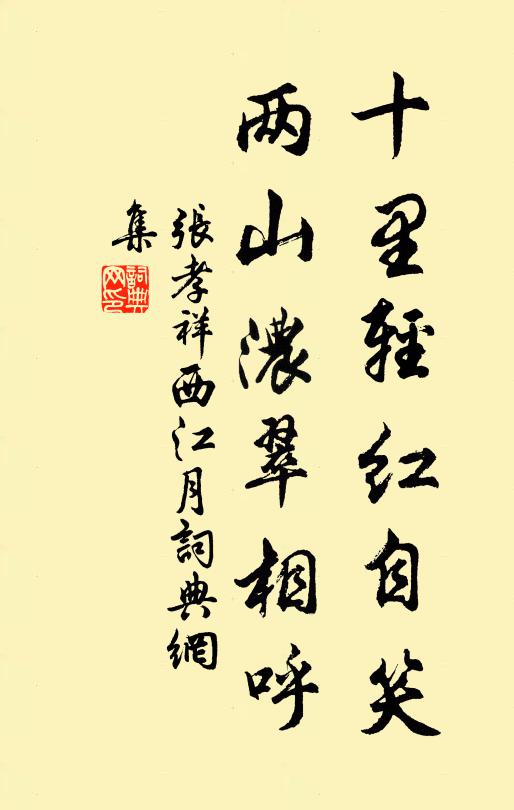 十里輕红自笑
两山濃翠相呼
張孝祥西江月詞典網
集
詞典
网印